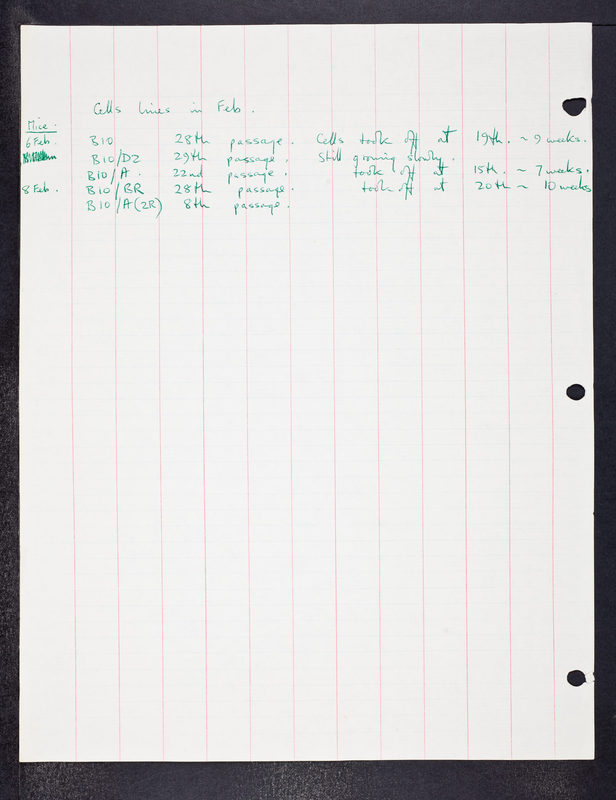 Cells lines in Feb.
Mice.
6 Feb. B10 28th passage. Cells took off at 19th. ~ 9 weeks.
B10/D2 29th passage. Still growing slowly.
B10/A. 22nd passage. took off at 15th. ~ 7 weeks.
8 Feb. B10/BR 28th passage. took off at 20th ~ 10 weeks
B10/A(2R) 8th passage.